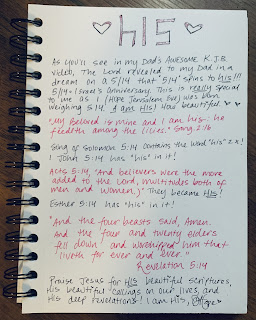 ♡ his ♡
As you'll see in my Dad's AWESOME K.J.B.
video, The Lord revealed to my Dad in a
dream on a 5/14 that "514" spins to his!!!
5/14 = Israel's Anniversary. This is really special
to me as I (Hope Jerusalem Eve) was born
weighing 5.14. I am His! How beautiful.
"My beloved is mine and I am his: he
feedeth among the lilies." Song 2:16
Song of Solomon 5:14 contains the word "his" 2x!
1 John 5:14 has "his" in it!
Acts 5:14, "And believers were the more
added to the Lord, multitudes both of
men and women,)" They became His!
Esther 5:14 has "his" in it!
"And the four beasts said, Amen.
And the four and twenty elders
fell down and worshipped him that
liveth for ever and ever."
Revelation 5:14
Praise Jesus for His beautiful scriptures,
His beautiful callings on our lives, and
His deep revelations! I am His,